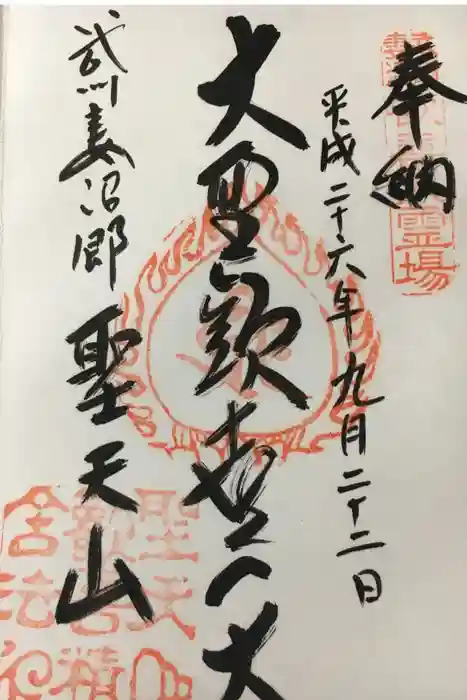 奉納
霊場
平成二十六年九月二十二日
大聖歓喜天
武州妻沼郷
聖天山
聖天山
歓喜